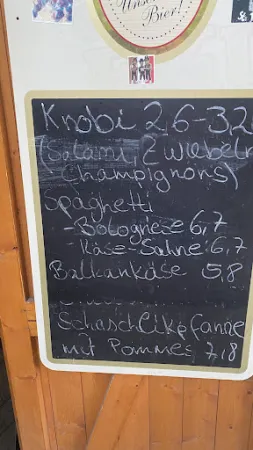 Unser
Bier!
Knobi 2,6-3,2
(Salami, Zwiebeln
Champignons)
Spaghetti
-Bolognese 6,7
-Käse-Sahne: 6,7
Balkankäse 5,8
Schaschlikpfanne
mit Pommes 7,8